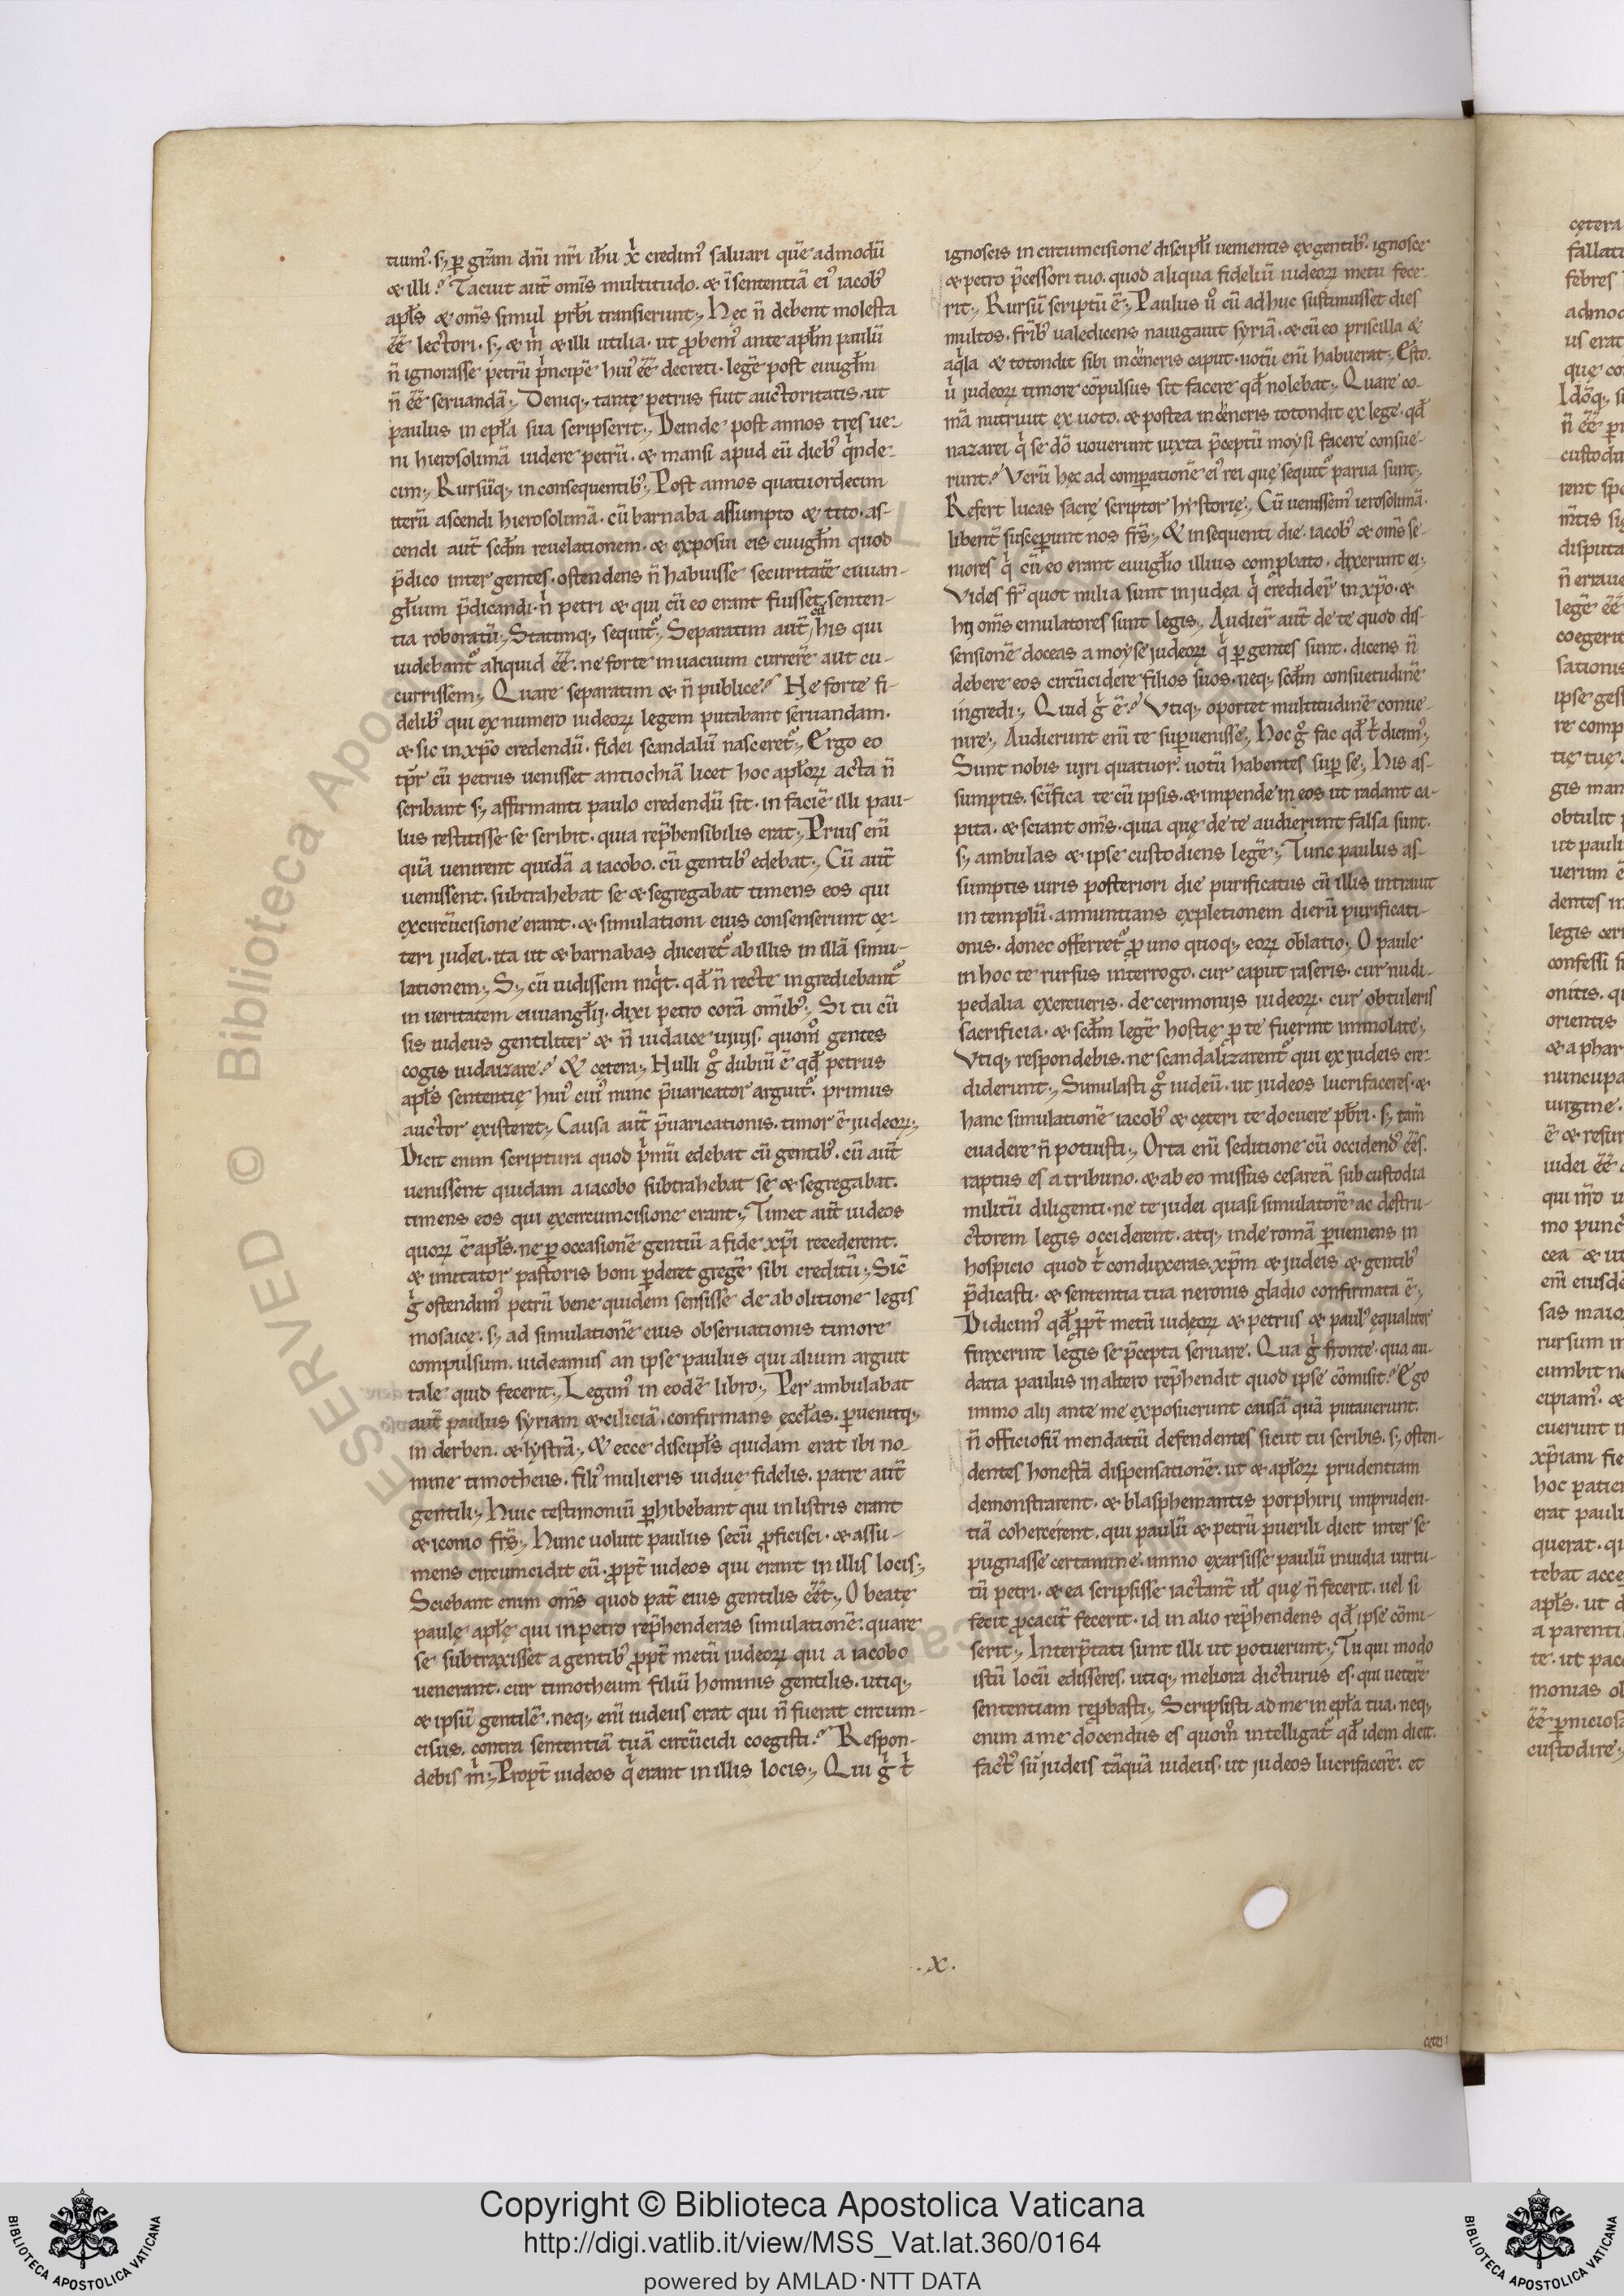 tium᷒. s; ꝑ gr̄am dn̄i nr̄i ih̄u x̄ credim᷒ saluari quē admodū
& illi? Tacuit aut̄ om̄is multitudo. & ī sententiā ei᷒ iacob᷒
apl̄s & om̄s simul prb̄i transierunt; Hęc n̄ debent molesta
ēe lectori. s; & m̄ & illi utilia. ut ꝓbem᷒ ante apl̄m paulū
n̄ ignorasse petrū p̄ncipē hui᷒ ēe decreti. legē post euugl̄m
n̄ ēe seruandā; Deniq; tantę petrus fuit auctoritatis. ut
paulus in epl̄a sua scripserit; Deinde post annos tres ue-
ni hierosolimā uidere petrū. & mansi apud eū dieb᷒ q̄nde-
cim; Rursūq; in consequentib᷒; Post annos quatuordecim
iterū ascendi hierosolimā. cū barnaba assumpto & tito. as-
cendi aut̄ scd̄m reuelationem. & exposui eis euugl̄m quod
p̄dico inter gentes. ostendens n̄ habuisse securitatē euuan-
gl̄ium p̄dicandi. n̄ petri & qui cū eo erant fuisset senten-
tia roboratū; Statimq; sequit᷒; Separatim aut̄ cū his qui
uidebant᷒ aliquid ēe. ne forte in uacuum currerē aut cu-
currissem; Quare separatim & n̄ publice? Ne forte fi-
delib᷒ qui ex numero iudeoꝝ legem putabant seruandam.
& sic in xp̄o credendū. fidei scandalū nasceret᷒; Ergo eo
tp̄r cū petrus uenisset antiochiā licet hoc apl̄oꝝ acta n̄
scribant s; affirmanti paulo credendū sit. in faciē illi pau-
lus restitisse se scribit. quia rep̄hensibilis erat; Prius eni
quā uenirent quidā a iacobo. cū gentib᷒ edebat; Cū aut̄
uenissent. subtrahebat se & segregabat timens eos qui
ex circūcisione erant. & simulationi eius consenserunt cę-
teri judei. ita ut & barnabas duceret᷒ ab illis in illā simu-
lationem; S; cū uidissem inq̄t. qd̄ n̄ recte ingrediebant᷒
in ueritatem euuangl̄ij. dixi petro corā omīb᷒; Si tu cū
sis iudeus gentiliter & n̄ iudaice uiuis. quom̊ gentes
cogis iudaizare? & cetera; Nulli g̊ dubiū ē qd̄ petrus
apl̄s sententię hui᷒ cui᷒ nunc p̄uaricator arguit᷒. primus
auctor existeret; Causa aut̄ p̄uaricationis. timor ē judeoꝝ;
Dicit enim scriptura quod p̄mū edebat cū gentib᷒. cū aut̄
uenissent quidam a iacobo subtrahebat se & segregabat.
timens eos qui ex circumcisione erant; Timet aut̄ iudeos
quoꝝ ē apl̄s. ne ꝑ occasionē gentiū a fide xp̄i recederent.
& imitator pastoris boni ꝑderet gregē sibi creditū; Sic̄
g̊ ostendim᷒ petrū bene quidem sensisse de abolitione legis
mosaice. s; ad simulationē eius obseruationis timore
compulsum. uideamus an ipse paulus qui alium arguit
tale quid fecerit; Legim᷒ in eodē libro; Per ambulabat
aut̄ paulus syriam & ciliciā. confirmans ęccl̄as. ꝑuenitq;
in derben. & lystrā; & ecce discipl̄s quidam erat ibi no-
mine timotheus. fili᷒ mulieris uiduę fidelis. patre aut̄
gentili; Huic testimoniū ꝑhibebant qui in listris erant
& iconio fr̄s; Hunc uoluit paulus secū ꝓficisci. & assu-
mens circumcidit eū. ꝓpt̄ iudeos qui erant in illis locis;
Sciebant enim om̄s quod pat̄ eius gentilis ēet; O beatę
paulę apl̄ę qui in petro rep̄henderas simulationē. quare
se subtraxisset a gentib᷒ ꝓpt̄ metū iudeoꝝ qui a iacobo
uenerant. cur timotheum filiū hominis gentilis. utiq;
& ipsū gentilē. neq; enī iudeus erat qui n̄ fuerat circum-
cisus. contra sententiā tuā circūcidi coegisti? Respon-
debis m̄; Propt̄ iudeos q̄ erant in illis locis; Qui g̊ t̄
ignoscis in circumcisione discipl̄i uenientis ex gentib᷒. ignosce
& petro p̄cessori tuo. quod aliqua fideliū iudeoꝝ metu fece-
rit; Rursū scriptū ē; Paulus ů cū adhuc sustinuisset dies
multos. fr̄ib᷒ ualedicens nauigauit syriā. & cū eo priscilla &
aq̄la & totondit sibi in cēncris caput. uotū enī habuerat; Esto.
ū judeoꝝ timore cōpulsus sit facere qd̄ nolebat; Quare co-
mā nutriuit ex uoto. & postea in cēncris totondit ex lege. qd̄
nazarei q̄ se dō uouerunt iuxta p̄ceptū moysi facere consue-
runt? Verū hęc ad comꝑationē ei᷒ rei quę sequit᷒ parua sunt;
Refert lucas sacrę scriptor hystorię; Cū uenissem᷒ ierosolimā.
libent̄ susceꝑunt nos fr̄s; & in sequenti die. iacob᷒ & om̄s se-
niores q̄ cū eo erant euugl̄io illius comꝓbato. dixerunt ei;
Vides fr̄ quot milia sunt in judęa q̄ credider̄ in xp̄o. &
hij om̄s emulatores sunt legis; Audier̄ aut̄ de te quod dis-
sensionē doceas a moyse judeoꝝ q̄ ꝑ gentes sunt. dicens n̄
debere eos circūcidere filios suos. neq; scd̄m consuetudinē
ingredi; Quid g̊ ē? Vtiq; oportet multitudinē conue-
nire; Audierunt enī te suꝑuenisse; Hoc g̊ fac qd̄ t̄ dicim᷒;
Sunt nobis uiri quatuor. uotū habentes suꝑ se; His as-
sumptis. scīfica te cū ipsis. & impende in eos ut radant ca-
pita. & sciant om̄s. quia quę de te audierunt falsa sunt.
s; ambulas & ipse custodiens legē; Tunc paulus as-
sumptis uiris posteriori die purificatus cū illis intrauit
in templū. annuntians expletionem dierū purificati-
onis. donec offerret᷒ ꝓ uno quoq; eoꝝ oblatio; O paule
in hoc te rursus interrogo. cur caput raseris. cur nudi-
pedalia exercueris. de cerimoniis iudeoꝝ. cur obtuleris
sacrificia. & scd̄m legē hostię ꝓ te fuerint immolate;
Vtiq; respondebis. ne scandalizarent᷒ qui ex judeis cre-
diderunt; Simulasti g̊ iudeū. ut judeos lucrifaceres. &
hanc simulationē iacob᷒ & cęteri te docuere prb̄i. s; tam̄
euadere n̄ potuisti; Orta enī seditione cū occidend᷒ ēes.
raptus es a tribuno. & ab eo missus cesareā sub custodia
militū diligenti. ne te judei quasi simulatorē ac destru-
ctorem legis occiderent. atq; inde romā ꝑueniens in
hospicio quod t̄ conduxeras. xp̄m & judeis & gentib᷒
p̄dicasti. & sententia tua neronis gladio confirmata ē;
Didicim᷒ qd̄ ꝓpt̄ metū iudęoꝝ & petrus & paul᷒ ęqualiter
finxerint legis se p̄cepta seruare. Qua g̊ fronte. qua au-
datia paulus in altero rep̄hendit quod ipse cōmisit? Ego
immo alij ante me exposuerunt causā quā putauerunt.
n̄ officiosū mendatiū defendentes sicut tu scribis. s; osten-
dentes honestā dispensationē. ut & apl̄oꝝ prudentiam
demonstrarent. & blasphemantis porphirij impruden-
tiā cohercérent. qui paulū & petrū puerili dicit inter se
pugnasse certamine. immo exarsisse paulū inuidia uirtu-
tū petri. & ea scripsisse iactant̄ ul̄ quę n̄ fecerit. uel si
fecit ꝓcacit̄ fecerit. id in alio rep̄hendens qd̄ ipse cōmi-
serit; Interp̄tati sunt illi ut potuerunt; Tu qui modo
istū locū edisseres. utiq; meliora dicturus es. qui ueterē
sententiam reꝓbasti; Scripsisti ad me in epl̄a tua. neq;
enim a me docendus es quom̊ intelligat᷒ qd̄ idem dicit.
fact᷒ sū judeis tāquā iudeus. ut judeos lucrifacerē. et
.x.
cętera
Copyright © Biblioteca Apostolica Vaticana
http://digi.vatlib.it/view/MSS_Vat.lat.360/0164
powered by AMLAD·NTT DATA